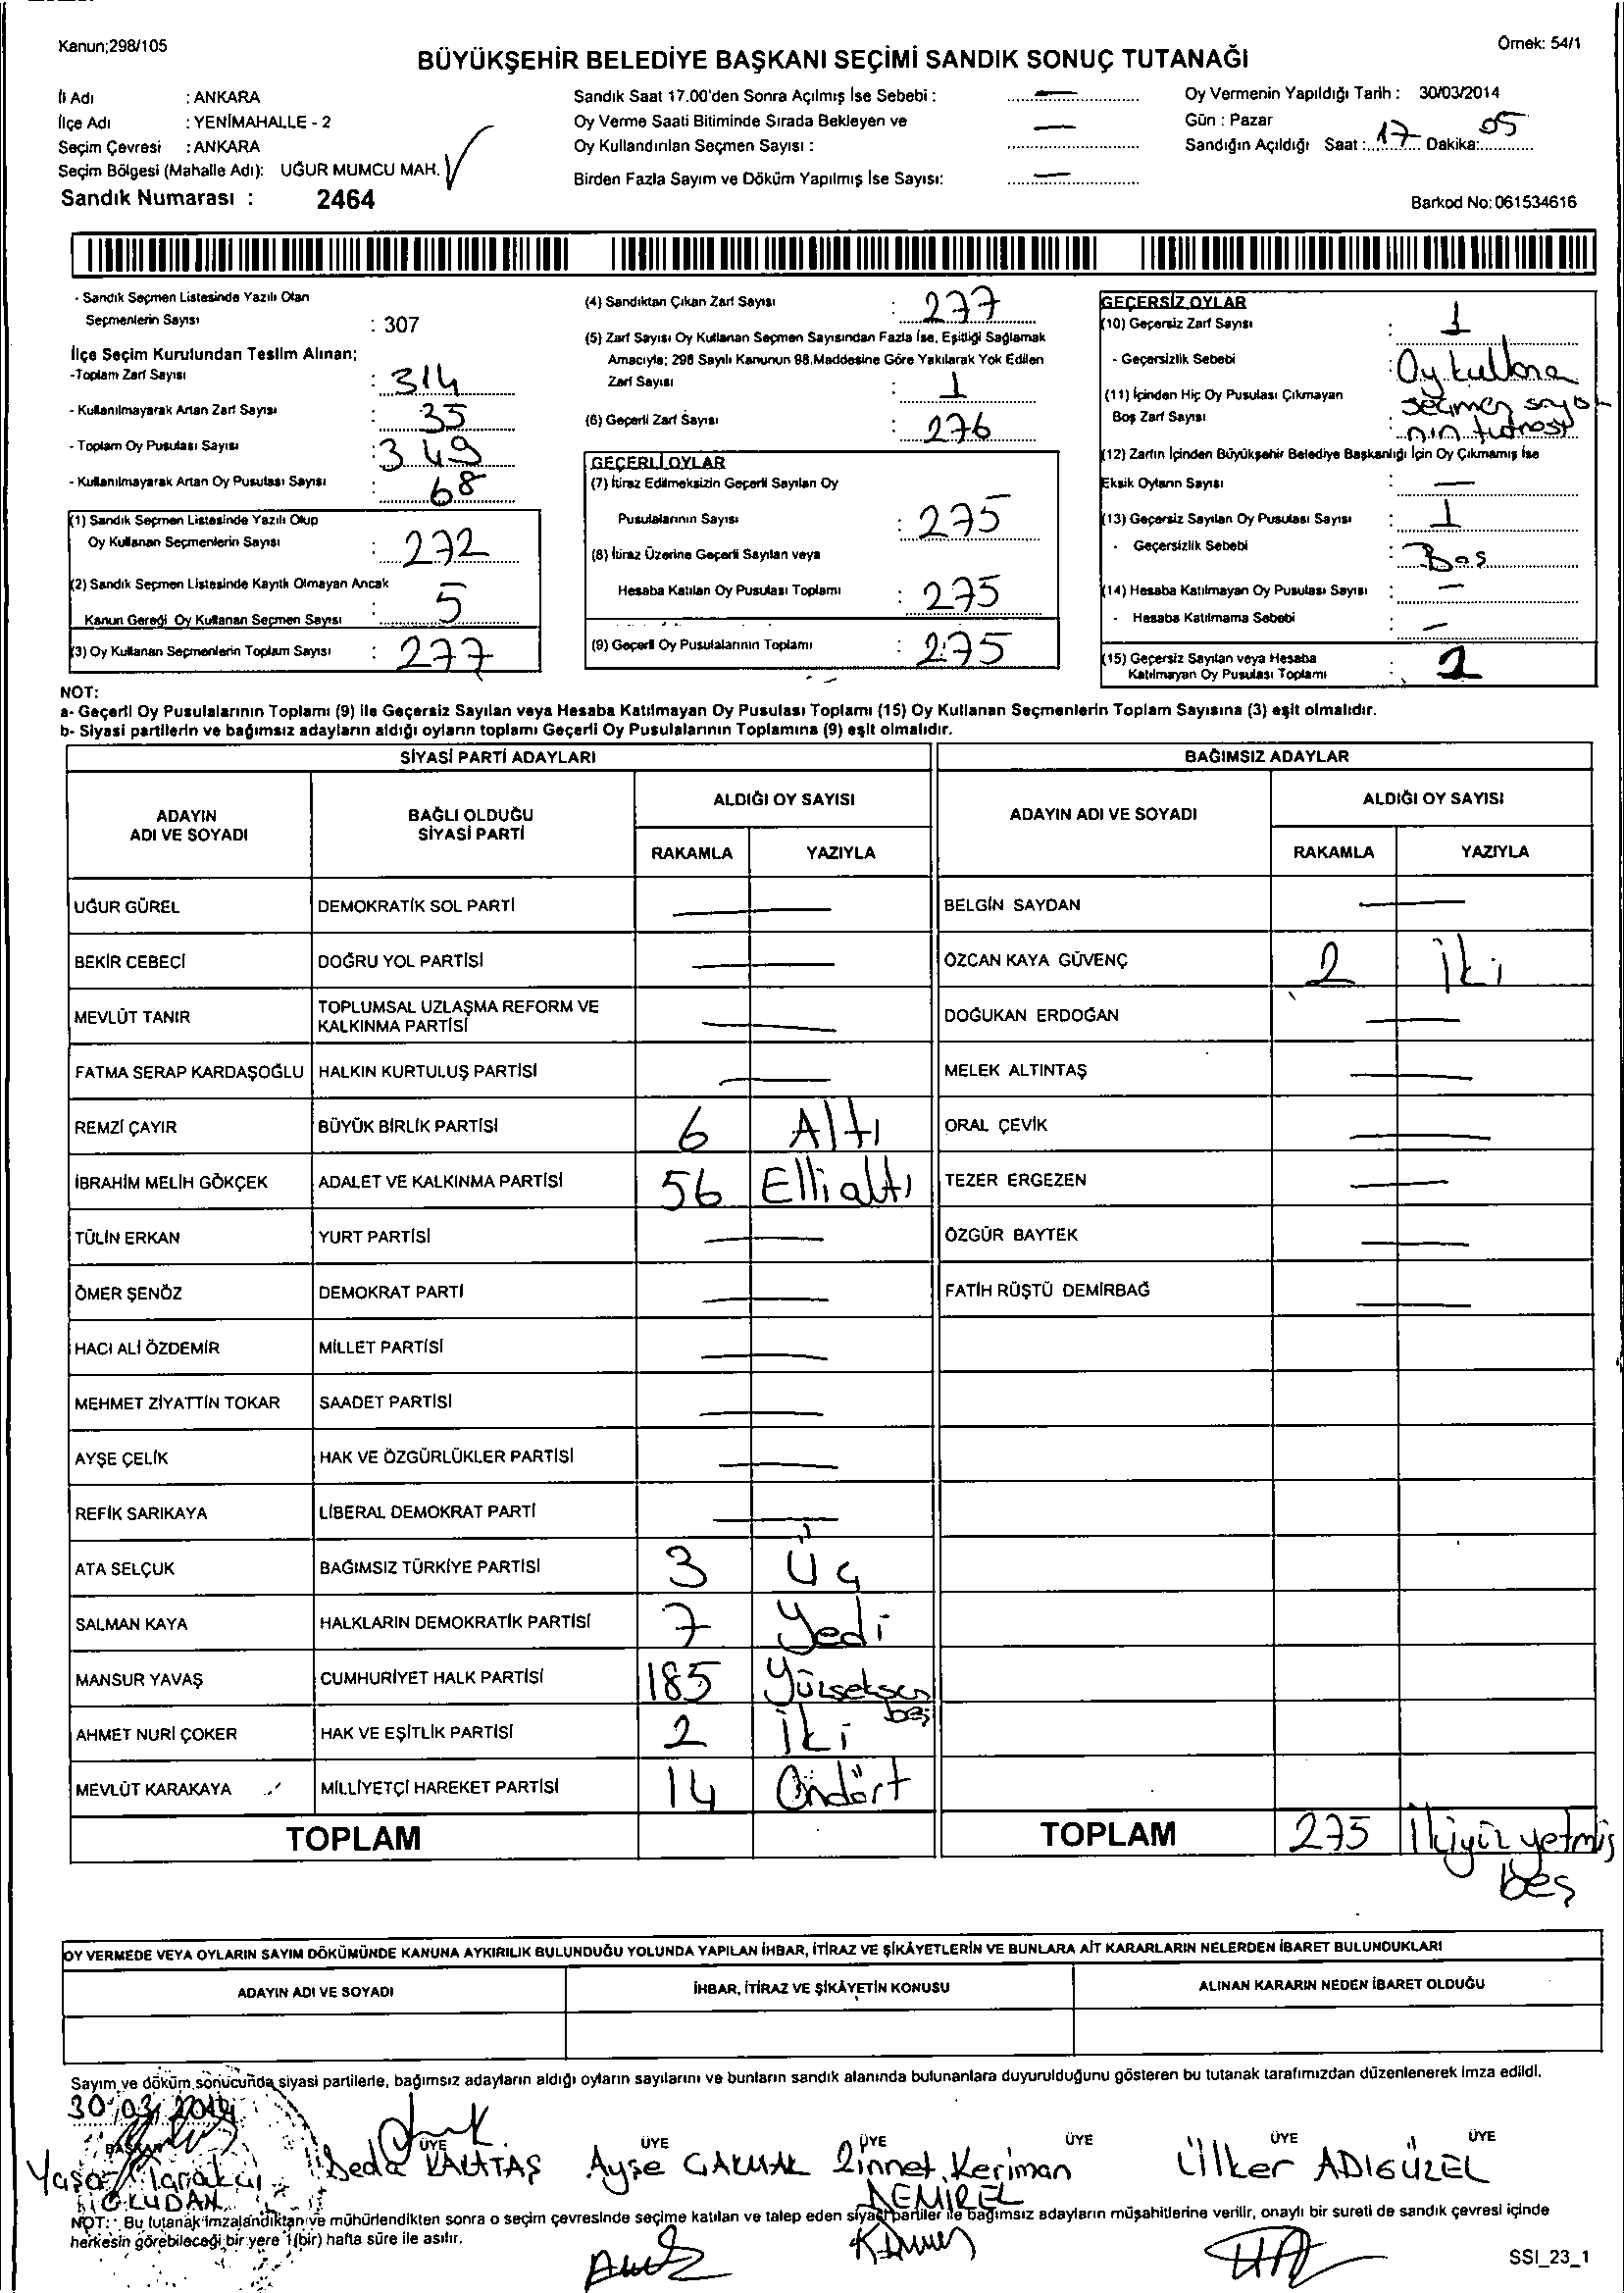 Kanun;298/105
Örnek: 54/1
BÜYÜKŞEHİR BELEDİYE BAŞKANI SEÇİMİ SANDIK SONUÇ TUTANAĞI
İl Adı : ANKARA
İlçe Adı : YENİMAHALLE - 2
Seçim Çevresi : ANKARA
Seçim Bölgesi (Mahalle Adı): UĞUR MUMCU MAH.
Sandık Numarası : 2464
Sandık Saat 17.00'den Sonra Açılmış İse Sebebi : —
Oy Verme Saati Bitiminde Sırada Bekleyen ve
Oy Kullandırılan Seçmen Sayısı : —
Birden Fazla Sayım ve Döküm Yapılmış İse Sayısı: —
Oy Vermenin Yapıldığı Tarih : 30/03/2014
Gün : Pazar
Sandığın Açıldığı Saat : 17 Dakika: 05
Barkod No: 061534616
- Sandık Seçmen Listesinde Yazılı Olan
Seçmenlerin Sayısı : 307
İlçe Seçim Kurulundan Teslim Alınan;
-Toplam Zarf Sayısı : 314
- Kullanılmayarak Artan Zarf Sayısı : 35
- Toplam Oy Pusulası Sayısı : 349
- Kullanılmayarak Artan Oy Pusulası Sayısı : 68
(1) Sandık Seçmen Listesinde Yazılı Olup
Oy Kullanan Seçmenlerin Sayısı : 272
(2) Sandık Seçmen Listesinde Kayıtlı Olmayan Ancak
Kanun Gereği Oy Kullanan Seçmen Sayısı : 5
(3) Oy Kullanan Seçmenlerin Toplam Sayısı : 277
(4) Sandıktan Çıkan Zarf Sayısı : 277
(5) Zarf Sayısı Oy Kullanan Seçmen Sayısından Fazla İse, Eşitliği Sağlamak
Amacıyla; 298 Sayılı Kanunun 98.Maddesine Göre Yakılarak Yok Edilen
Zarf Sayısı : 1
(6) Geçerli Zarf Sayısı : 276
GEÇERLİ OYLAR
(7) İtiraz Edilmeksizin Geçerli Sayılan Oy
Pusulalarının Sayısı : 275
(8) İtiraz Üzerine Geçerli Sayılan veya
Hesaba Katılan Oy Pusulası Toplamı : 275
(9) Geçerli Oy Pusulalarının Toplamı : 275
GEÇERSİZ OYLAR
(10) Geçersiz Zarf Sayısı : 1
- Geçersizlik Sebebi : Oy kullana
seçmen sayı
nın tutması
(11) İçinden Hiç Oy Pusulası Çıkmayan
Boş Zarf Sayısı :
(12) Zarfın İçinden Büyükşehir Belediye Başkanlığı İçin Oy Çıkmamış İse
Eksik Oyların Sayısı : —
(13) Geçersiz Sayılan Oy Pusulası Sayısı : 1
- Geçersizlik Sebebi : Boş
(14) Hesaba Katılmayan Oy Pusulası Sayısı : —
- Hesaba Katılmama Sebebi : —
(15) Geçersiz Sayılan veya Hesaba
Katılmayan Oy Pusulası Toplamı :
NOT:
a- Geçerli Oy Pusulalarının Toplamı (9) ile Geçersiz Sayılan veya Hesaba Katılmayan Oy Pusulası Toplamı (15) Oy Kullanan Seçmenlerin Toplam Sayısına (3) eşit olmalıdır.
b- Siyasi partilerin ve bağımsız adayların aldığı oyların toplamı Geçerli Oy Pusulalarının Toplamına (9) eşit olmalıdır.
SİYASİ PARTİ ADAYLARI BAĞIMSIZ ADAYLAR
ADAYIN
ADI VE SOYADI
BAĞLI OLDUĞU
SİYASİ PARTİ
ALDIĞI OY SAYISI
RAKAMLA YAZIYLA
ADAYIN ADI VE SOYADI
ALDIĞI OY SAYISI
RAKAMLA YAZIYLA
UĞUR GÜREL DEMOKRATİK SOL PARTİ — BELGİN SAYDAN —
BEKİR CEBECİ DOĞRU YOL PARTİSİ — ÖZCAN KAYA GÜVENÇ 2 İki
MEVLÜT TANIR TOPLUMSAL UZLAŞMA REFORM VE
KALKINMA PARTİSİ — DOĞUKAN ERDOĞAN —
FATMA SERAP KARDAŞOĞLU HALKIN KURTULUŞ PARTİSİ — MELEK ALTINTAŞ —
REMZİ ÇAYIR BÜYÜK BİRLİK PARTİSİ 6 Altı ORAL ÇEVİK —
İBRAHİM MELİH GÖKÇEK ADALET VE KALKINMA PARTİSİ 56 Ellialtı TEZER ERGEZEN —
TÜLİN ERKAN YURT PARTİSİ — ÖZGÜR BAYTEK —
ÖMER ŞENÖZ DEMOKRAT PARTİ — FATİH RÜŞTÜ DEMİRBAĞ —
HACI ALİ ÖZDEMİR MİLLET PARTİSİ —
MEHMET ZİYATTİN TOKAR SAADET PARTİSİ —
AYŞE ÇELİK HAK VE ÖZGÜRLÜKLER PARTİSİ —
REFİK SARIKAYA LİBERAL DEMOKRAT PARTİ —
ATA SELÇUK BAĞIMSIZ TÜRKİYE PARTİSİ 3 Üç
SALMAN KAYA HALKLARIN DEMOKRATİK PARTİSİ 7 Yedi
MANSUR YAVAŞ CUMHURİYET HALK PARTİSİ 185 Yüzseksen
beş
AHMET NURİ ÇOKER HAK VE EŞİTLİK PARTİSİ 2 İki
MEVLÜT KARAKAYA MİLLİYETÇİ HAREKET PARTİSİ 14 Ondört
TOPLAM TOPLAM 275 İkiyüz yetmiş
beş
OY VERMEDE VEYA OYLARIN SAYIM DÖKÜMÜNDE KANUNA AYKIRILIK BULUNDUĞU YOLUNDA YAPILAN İHBAR, İTİRAZ VE ŞİKÂYETLERİN VE BUNLARA AİT KARARLARIN NELERDEN İBARET BULUNDUKLARI
ADAYIN ADI VE SOYADI İHBAR, İTİRAZ VE ŞİKÂYETİN KONUSU ALINAN KARARIN NEDEN İBARET OLDUĞU
Sayım ve döküm sonucunda siyasi partilerle, bağımsız adayların aldığı oyların sayılarını ve bunların sandık alanında bulunanlara duyurulduğunu gösteren bu tutanak tarafımızdan düzenlenerek imza edildi.
30/03/2014
BAŞKAN ÜYE ÜYE ÜYE ÜYE ÜYE ÜYE
Yaşar Seda KALATAŞ Ayşe ÇAKMAK Zinnet Keriman Ülker ADIGÜZEL
DEMİREL
NOT: Bu tutanak imzalandıktan ve mühürlendikten sonra o seçim çevresinde seçime katılan ve talep eden siyasi partiler ile bağımsız adayların müşahitlerine verilir, onaylı bir sureti de sandık çevresi içinde
herkesin görebileceği bir yere 1(bir) hafta süre ile asılır.
SSI_23_1